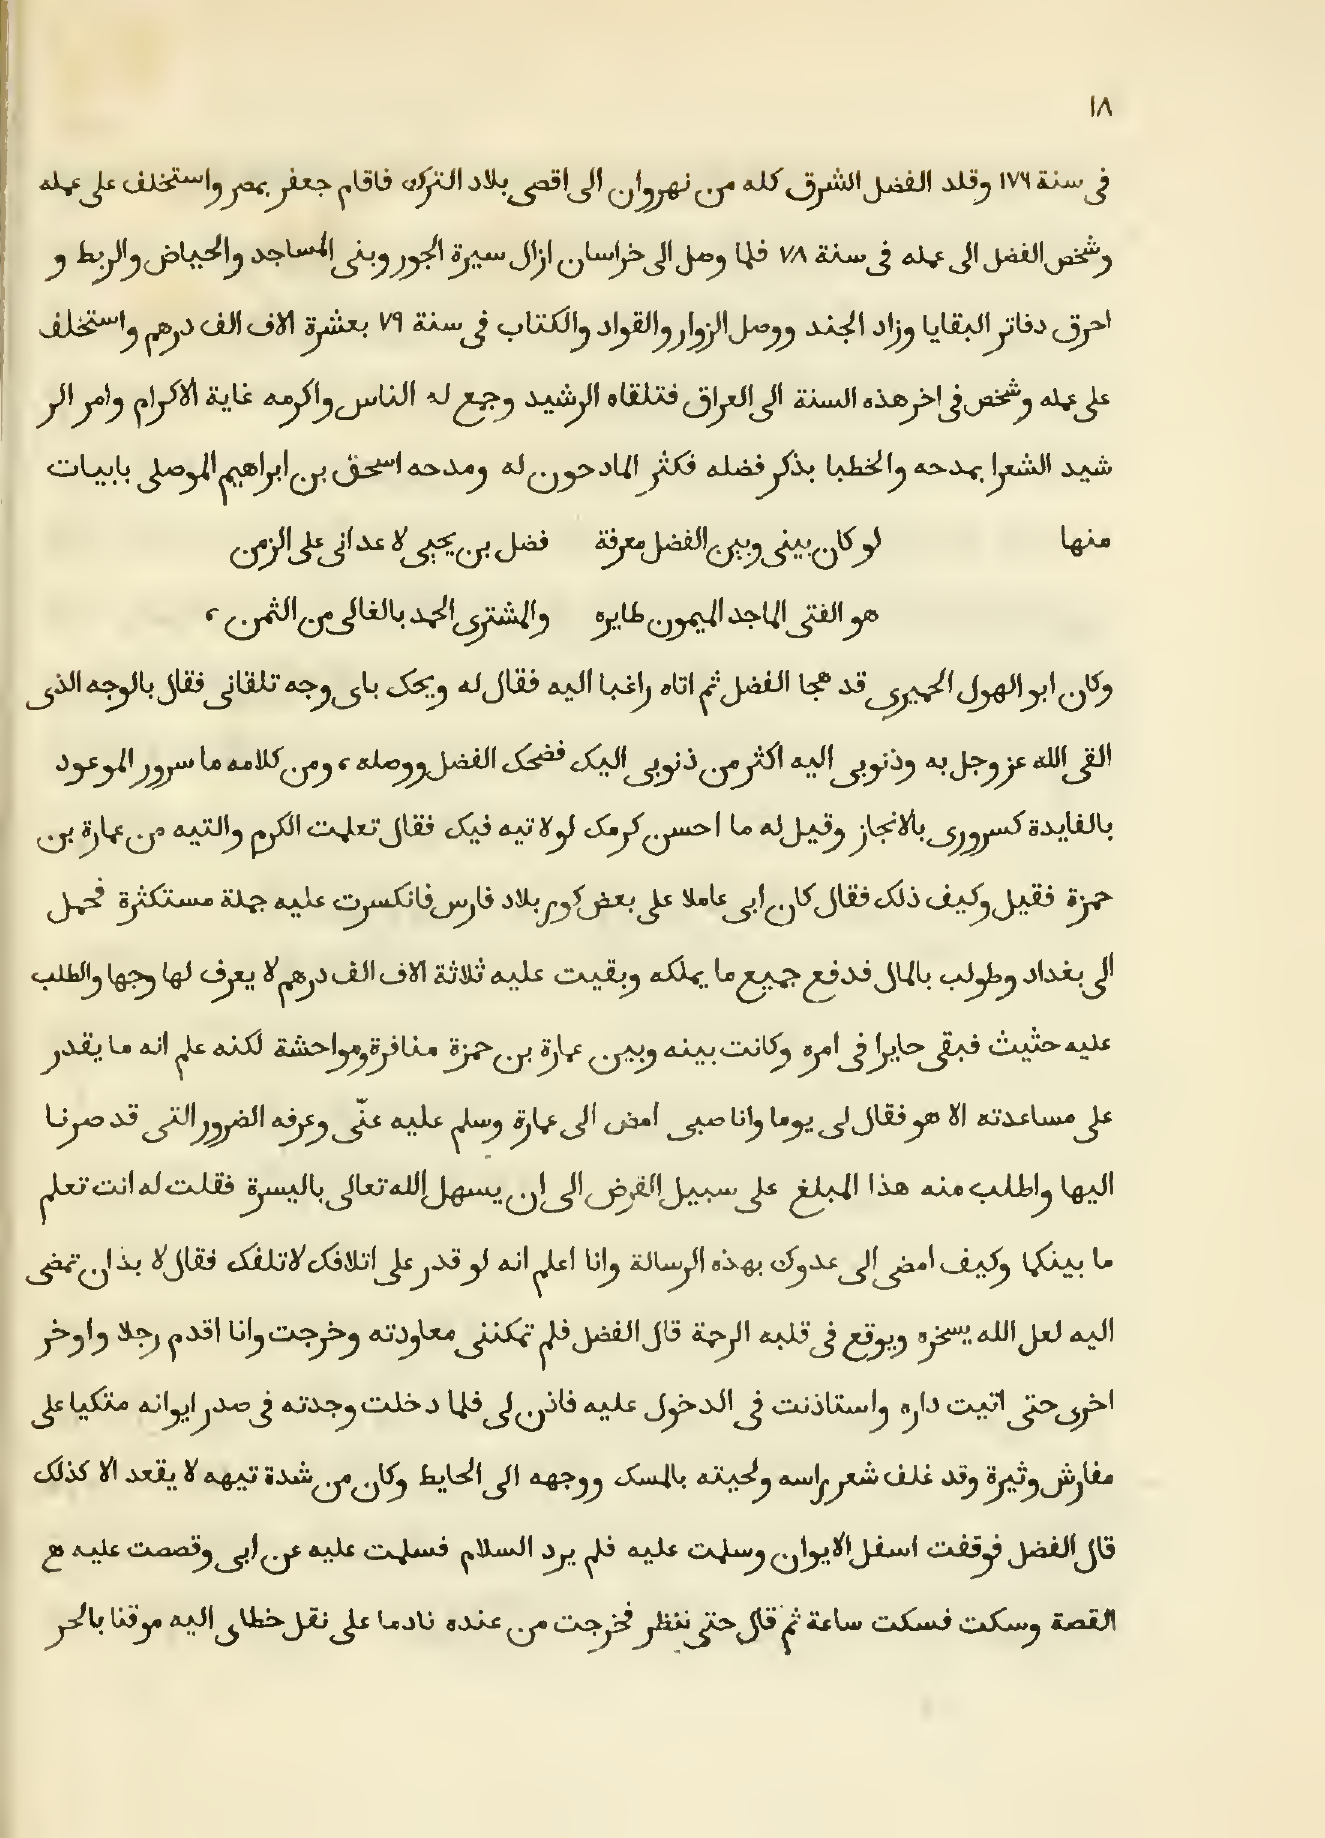 ١٨
فى سنة ١٧٦ وقلد الفضل الشرق كله من نهروان الى اقصى بلاد الترك فاقام جعفر بمصر واستخلف على عمله
وشخص الفضل الى عمله فى سنة ٧٨ فلما وصل الى خراسان ازال سيرة الجور وبنى المساجد والحياض والربط و
احرق دفاتر البقايا وزاد الجند ووصل الزوار والقواد والكتاب فى سنة ٧٩ بعشرة الاف الف درهم واستخلف
على عمله وشخص فى اخر هذه السنة الى العراق فتلقاه الرشيد وجمع له الناس واكرمه غاية الاكرام وامر الر
شيد الشعرا بمدحه والخطبا بذكر فضله فكثر المادحون له ومدحه اسحق بن ابراهيم الموصلى بابيات
منها لو كان بينى وبين الفضل معرفة فضل بن يحيى لاعدانى على الزمن
هو الفتى الماجد الميمون طايره والمشترى الحمد بالغالى من الثمن ،
وكان ابو الهول الحميرى قد هجا الفضل ثم اتاه راغبا اليه فقال له ويحك باى وجه تلقانى فقال بالوجه الذى
القى الله عز وجل به وذنوبى اليه اكثر من ذنوبى اليك فضحك الفضل ووصله ، ومن كلامه ما سرور الموعود
بالفايدة كسرورى بالانجاز وقيل له ما احسن كرمك لولا تيه فيك فقال تعلمت الكرم والتيه من عمارة بن
حمزة فقيل وكيف ذلك فقال كان ابى عاملا على بعض كور بلاد فارس فانكسرت عليه جملة مستكثرة فحمل
الى بغداد وطولب بالمال فدفع جميع ما يملكه وبقيت عليه ثلاثة الاف الف درهم لا يعرف لها وجها والطلب
عليه حثيث فبقى حايرا فى امره وكانت بينه وبين عمارة بن حمزة منافرة ومواحشة لكنه علم انه ما يقدر
على مساعدته الا هو فقال لى يوما وانا صبى امض الى عمارة وسلم عليه عنّى وعرفه الضرور التى قد صرنا
اليها واطلب منه هذا المبلغ على سبيل القرض الى ان يسهل الله تعالى باليسرة فقلت له انت تعلم
ما بينكما وكيف امضى الى عدوك بهذه الرسالة وانا اعلم انه لو قدر على اتلافك لاتلفك فقال لا بذ ان تمضى
اليه لعل الله يسخره ويوقع فى قلبه الرحمة قال الفضل فلم تمكننى معاودته وخرجت وانا اقدم رجلا واوخر
اخرى حتى اتيت داره واستاذنت فى الدخول عليه فاذن لى فلما دخلت وجدته فى صدر ايوانه متكيا على
مفارش وثيرة وقد غلف شعر راسه ولحيته بالمسك ووجهه الى الحايط وكان من شدة تيهه لا يقعد الا كذلك
قال الفضل فوقفت اسفل الايوان وسلمت عليه فلم يرد السلام فسلمت عليه عن ابى وقصصت عليه
القصة وسكت فسكت ساعة ثم قال حتى ننظر فخرجت من عنده نادما على نقل خطاى اليه موقنا بالحر